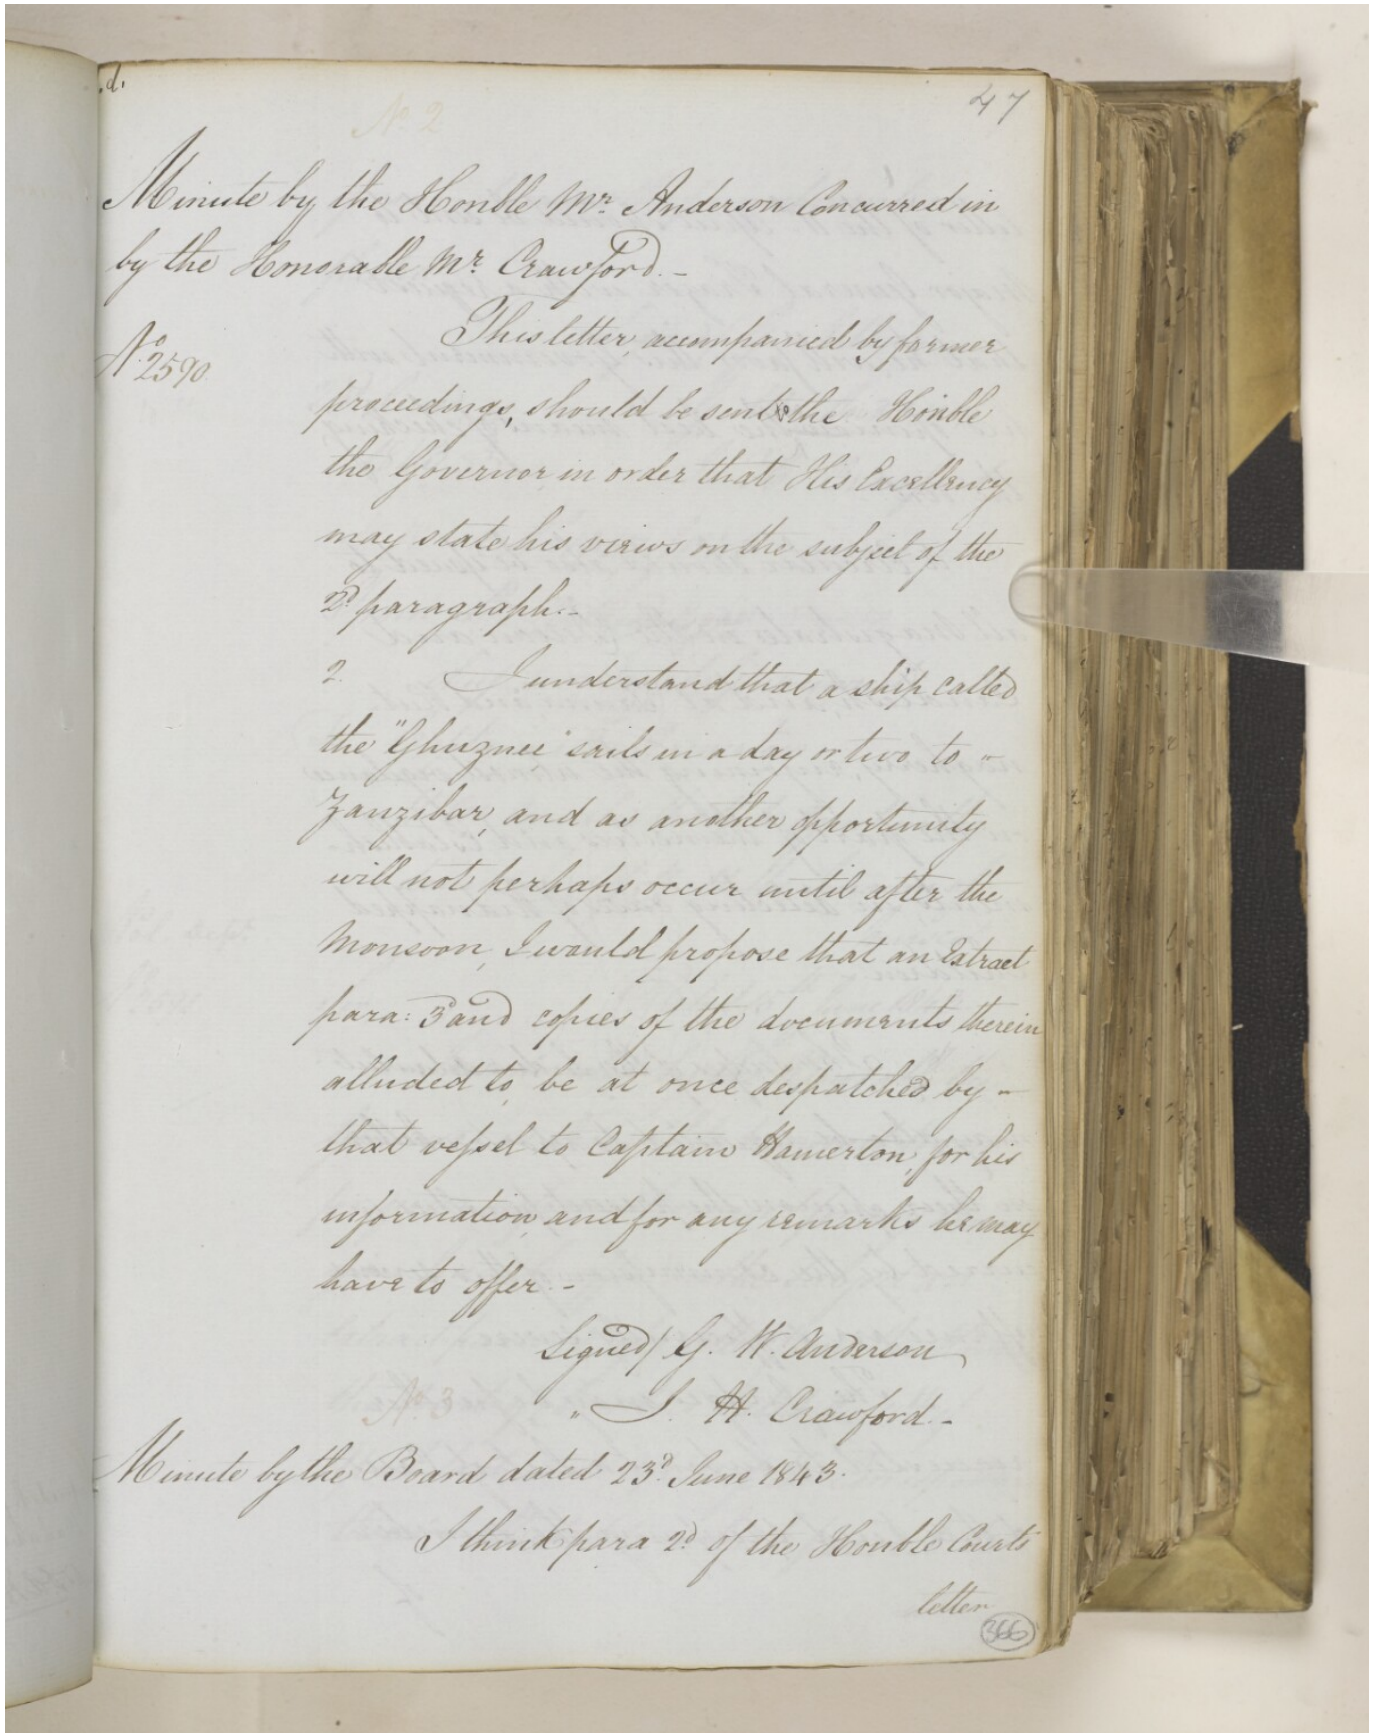 d.
47
No. 2
Minute by the Honble Mr. Anderson Concurred in
by the Honorable Mr. Crawford. -
No. 2590
This letter, accompanied by former
proceedings, should be sent to the Honble
the Governor in order that His Excellency
may state his views on the subject of the
2d. paragraph. -
2. I understand that a ship called
the "Ghuznee" sails in a day or two to -
Zanzibar, and as another opportunity
will not perhaps occur until after the
Monsoon, I would propose that an Extract
para: 3 and copies of the documents therein
alluded to, be at once despatched by -
that vessel to Captain Hamerton, for his
information and for any remarks he may
have to offer. -
Signed/ G. W. Anderson
" J. H. Crawford. -
No. 3
Minute by the Board dated 23d. June 1843.
I think para 2d. of the Honble Courts
letter
366